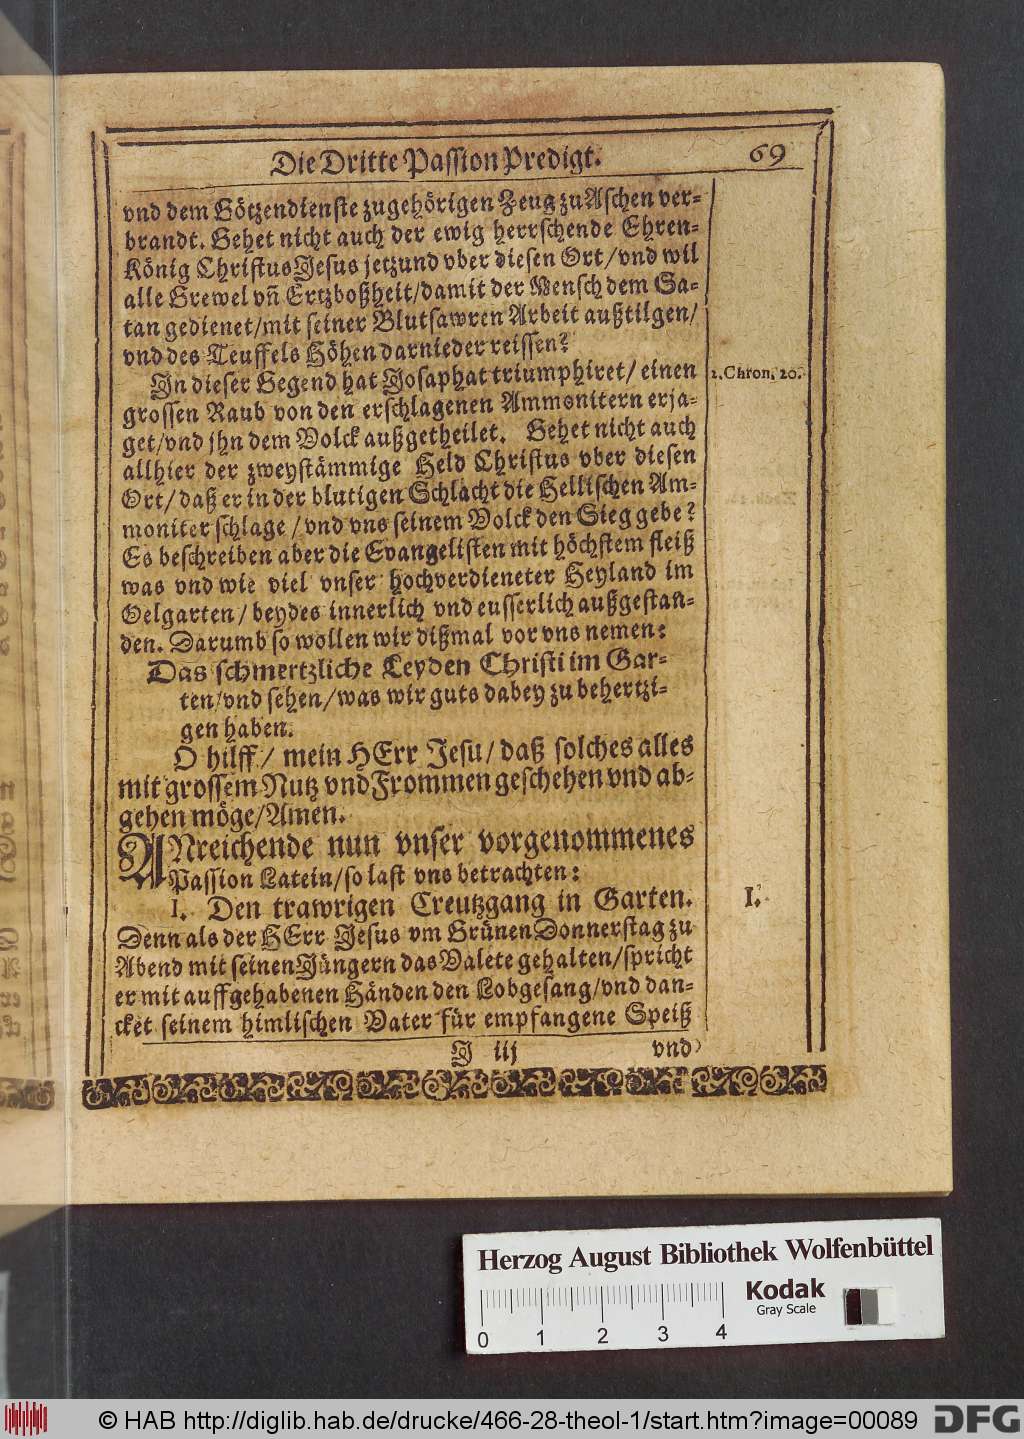 Die Dritte Passion Predigt. 69
vnd dem Götzendienste zugehörigen Zeug zu Aschen ver-
brandt. Sehet nicht auch der ewig herrschende Ehren-
König Christus Jesus jetzund vber diesen Ort/ vnd wil
alle Grewel vñ Ertzboßheit/ damit der Mensch dem Sa-
tan gedienet/ mit seiner Blutsawren Arbeit außtilgen/
vnd des Teuffels Höhen darnieder reissen?
In dieser Gegend hat Josaphat triumphiret/ einen
2. Chron. 20.
grossen Raub von den erschlagenen Ammonitern erja-
get/ vnd jhn dem Volck außgetheilet. Gehet nicht auch
allhier der zweystämmige Held Christus vber diesen
Ort/ daß er in der blutigen Schlacht die Hellischen Am-
moniter schlage/ vnd vns seinem Volck den Sieg gebe?
Es beschreiben aber die Evangelisten mit höchstem fleiß
was vnd wie viel vnser hochverdieneter Heyland im
Oelgarten/ beydes innerlich vnd eusserlich außgestan-
den. Darumb so wollen wir dißmal vor vns nemen:
Das schmertzliche Leyden Christi im Gar-
ten/ vnd sehen/ was wir guts dabey zu behertzi-
gen haben.
O hilff/ mein HErr Jesu/ daß solches alles
mit grossem Nutz vnd Frommen geschehen vnd ab-
gehen möge/ Amen.
ANreichende nun vnser vorgenommenes
Passion Latein/ so last vns betrachten:
I. Den trawrigen Creutzgang in Garten.
I.
Denn als der HErr Jesus vm Grünen Donnerstag zu
Abend mit seinen Jüngern das Valete gehalten/ spricht
er mit auffgehabenen Händen den Lobgesang/ vnd dan-
cket seinem himlischen Vater für empfangene Speiß
J iij vnd
Herzog August Bibliothek Wolfenbüttel
Kodak
Gray Scale
0 1 2 3 4
© HAB http://diglib.hab.de/drucke/466-28-theol-1/start.htm?image=00089
DFG